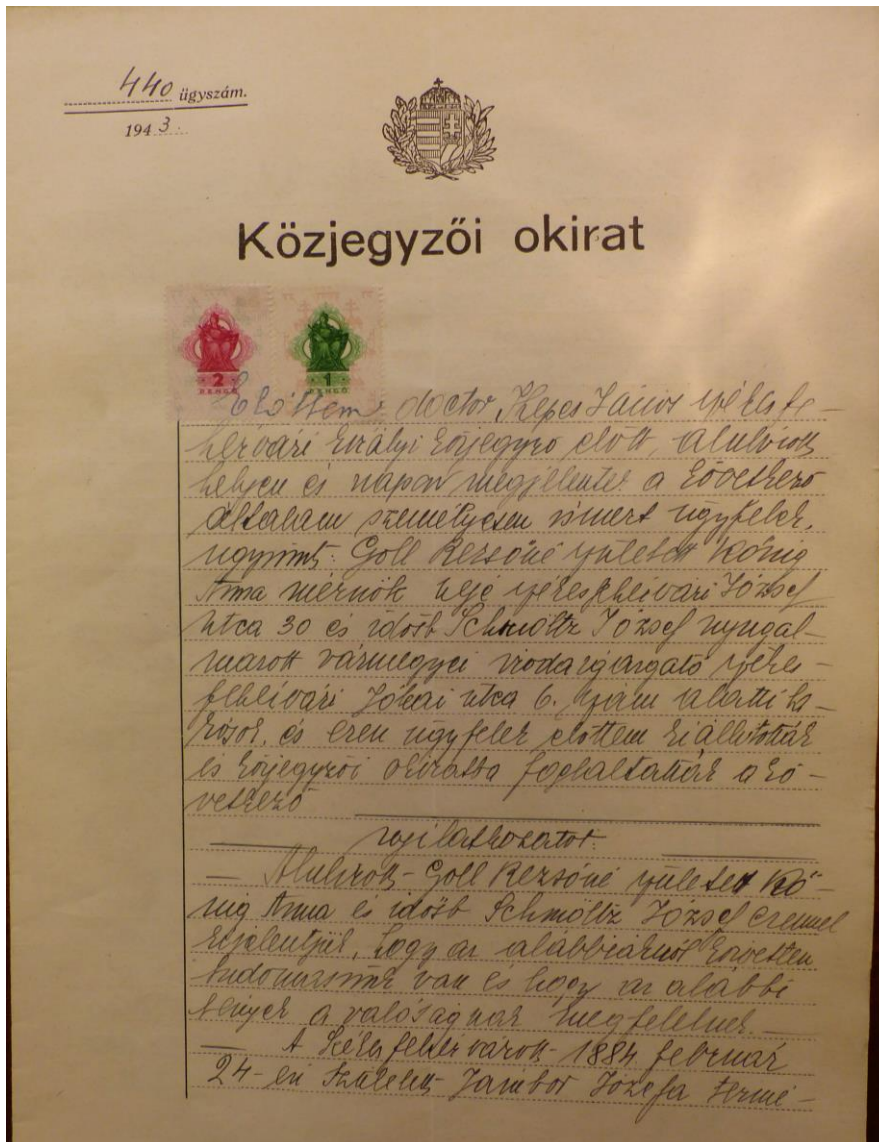 440 ügyszám.
1943.
Közjegyzői okirat
2 1
PENGŐ PENGŐ
Előttem doctor Kepes János székesfe-
hérvári királyi közjegyző előtt, alulírott
helyen és napon megjelentek a következő
általam személyesen ismert ügyfelek,
ugymint: Goll Rezsőné született König
Anna mérnök neje székesfehérvári József
utca 30 és idősb Schmöltz József nyugal-
mazott vármegyei irodaigazgató székes-
fehérvári Jókai utca 6. szám alatti la-
kósok, és ezen ügyfelek előttem kiállitották
és közjegyzői okiratba foglaltatták a kö-
vetkező
nyilatkozatot:
— Alulirott Goll Rezsőné született Kö-
nig Anna és idősb Schmöltz József ezennel
kijelentjük, hogy az alábbiakról közvetlen
tudomásunk van és hogy az alábbi
tények a valóságnak megfelelnek. —
— A Székesfehérvárott 1884 február
24-én született Jámbor Józefa termé-